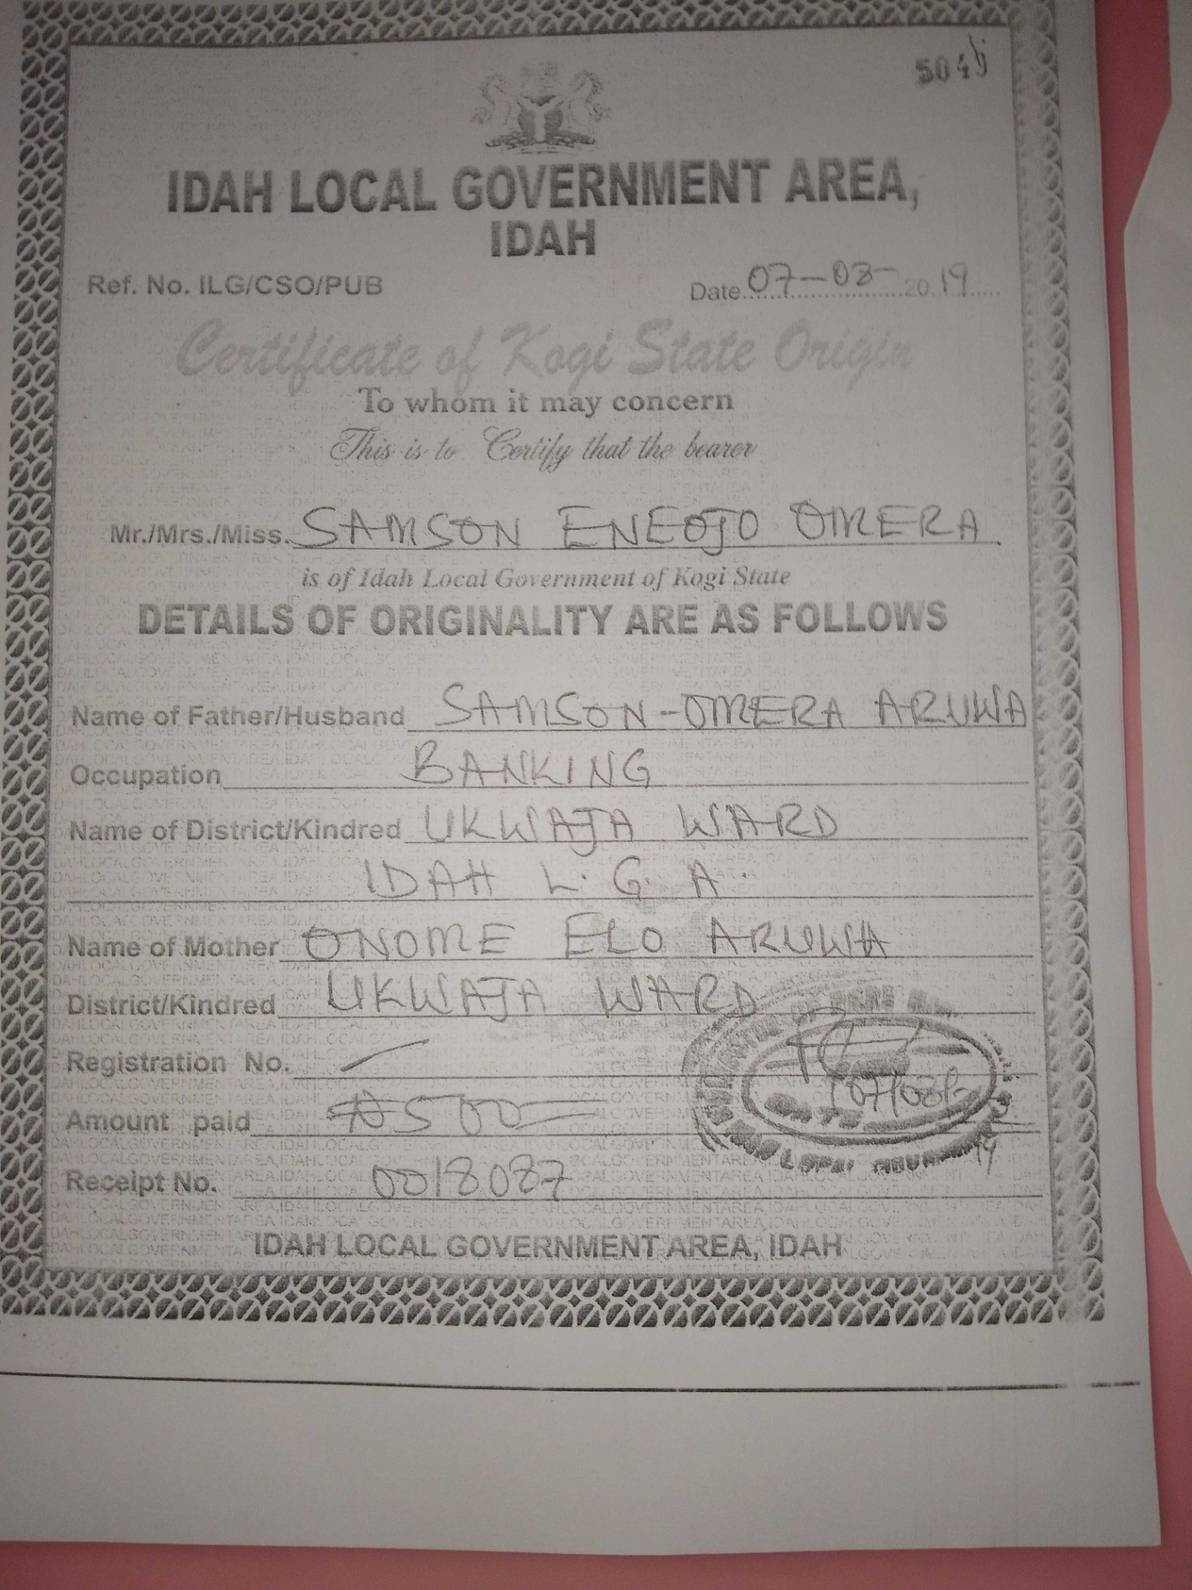 IDAH LOCAL GOVERNMENT AREA,
IDAH
Ref. No. ILG/CSO/PUB
Date 07-03-2019
Certificate of Kogi State Origin
To whom it may concern
This is to Certify that the bearer
Mr./Mrs./Miss. SAMSON ENEOJO OMERA
is of Idah Local Government of Kogi State
DETAILS OF ORIGINALITY ARE AS FOLLOWS
Name of Father/Husband SAMSON-OMERA ARUWA
Occupation BANKING
Name of District/Kindred UKWAJA WARD
IDAH L.G.A.
Name of Mother ONOME ELO ARUWA
District/Kindred UKWAJA WARD
Registration No.
Amount paid ₦500=
Receipt No. 0018087
IDAH LOCAL GOVERNMENT AREA, IDAH